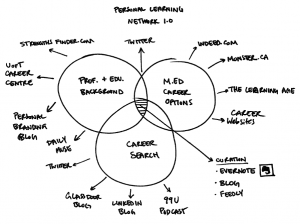 PERSONAL LEARNING
NETWORK 1.0
STRENGTHS FINDER.COM
TWITTER
INDEED.COM
MONSTER.CA
UOFT
CAREER
CENTRE
PROF. + EDU.
BACKGROUND
M.ED
CAREER
OPTIONS
THE LEARNING AGE
PERSONAL
BRANDING
BLOG
CAREER
WEBSITES
DAILY
MUSE
CAREER
SEARCH
TWITTER
CURATION
- EVERNOTE
- BLOG
- FEEDLY
GLASSDOOR
BLOG
LINKEDIN
BLOG
99U
PODCAST